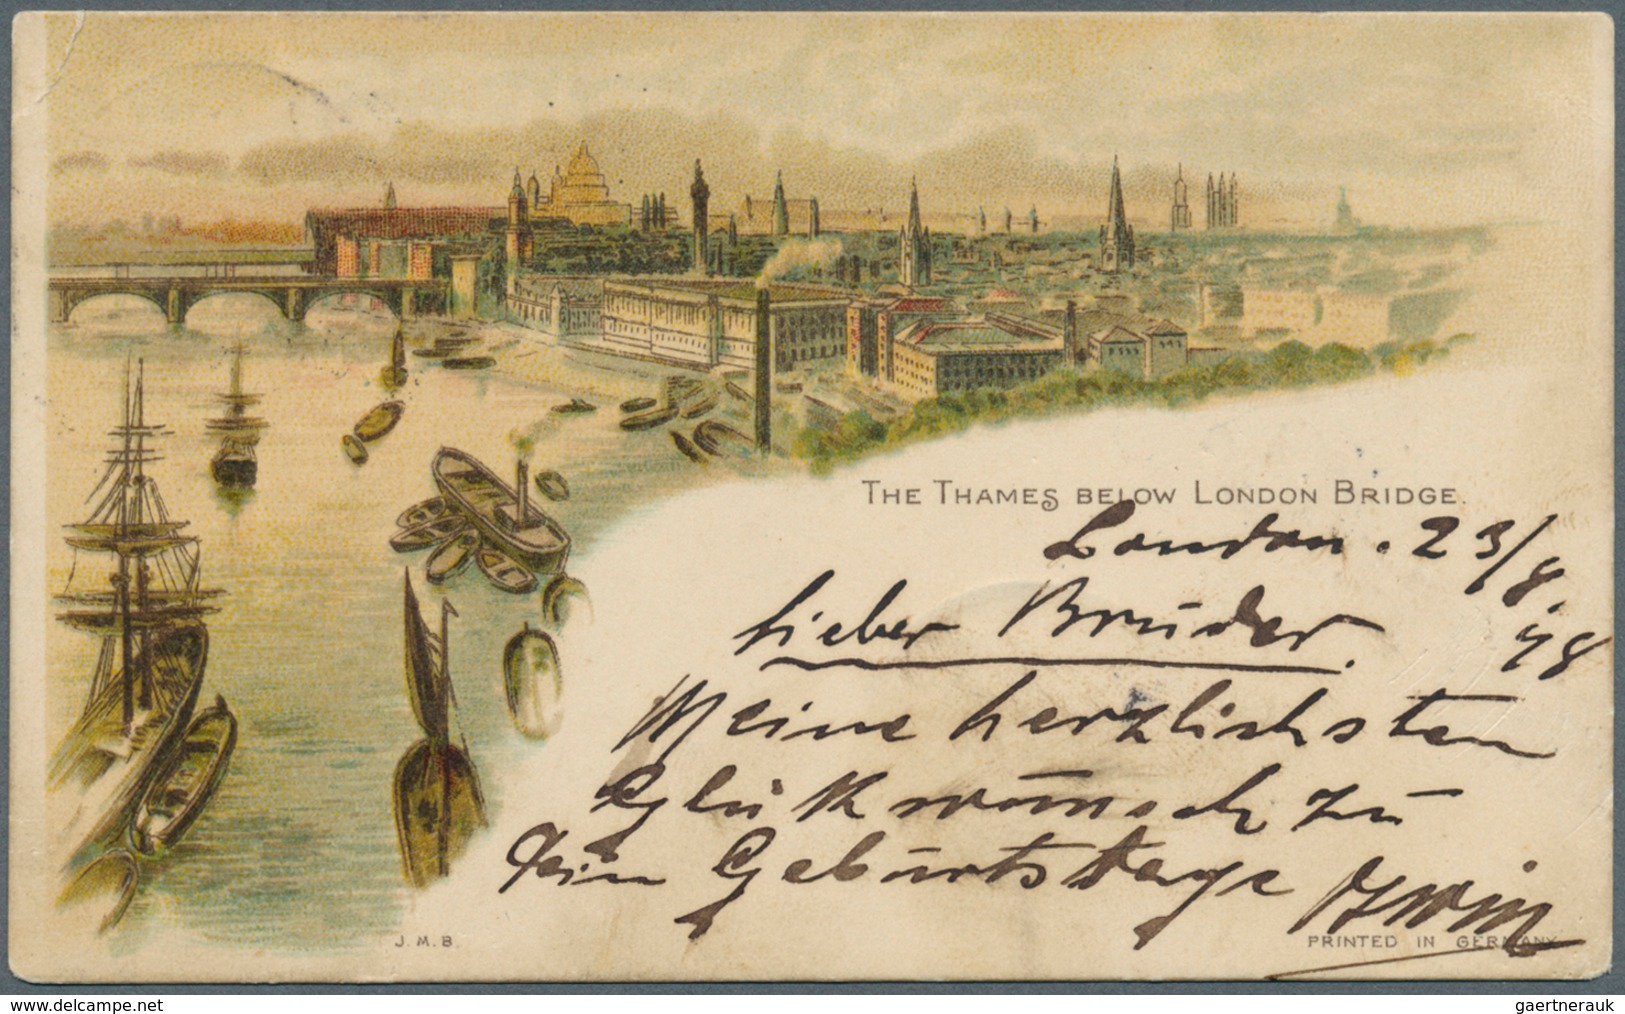 THE THAMES BELOW LONDON BRIDGE.
London. 23/8.
98
Lieber Bruder.
Meine herzlichsten
Glückwünsch zu
Dein Geburtstage
J. M. B.
PRINTED IN GERMANY
www.delcampe.net
gaertnerauk